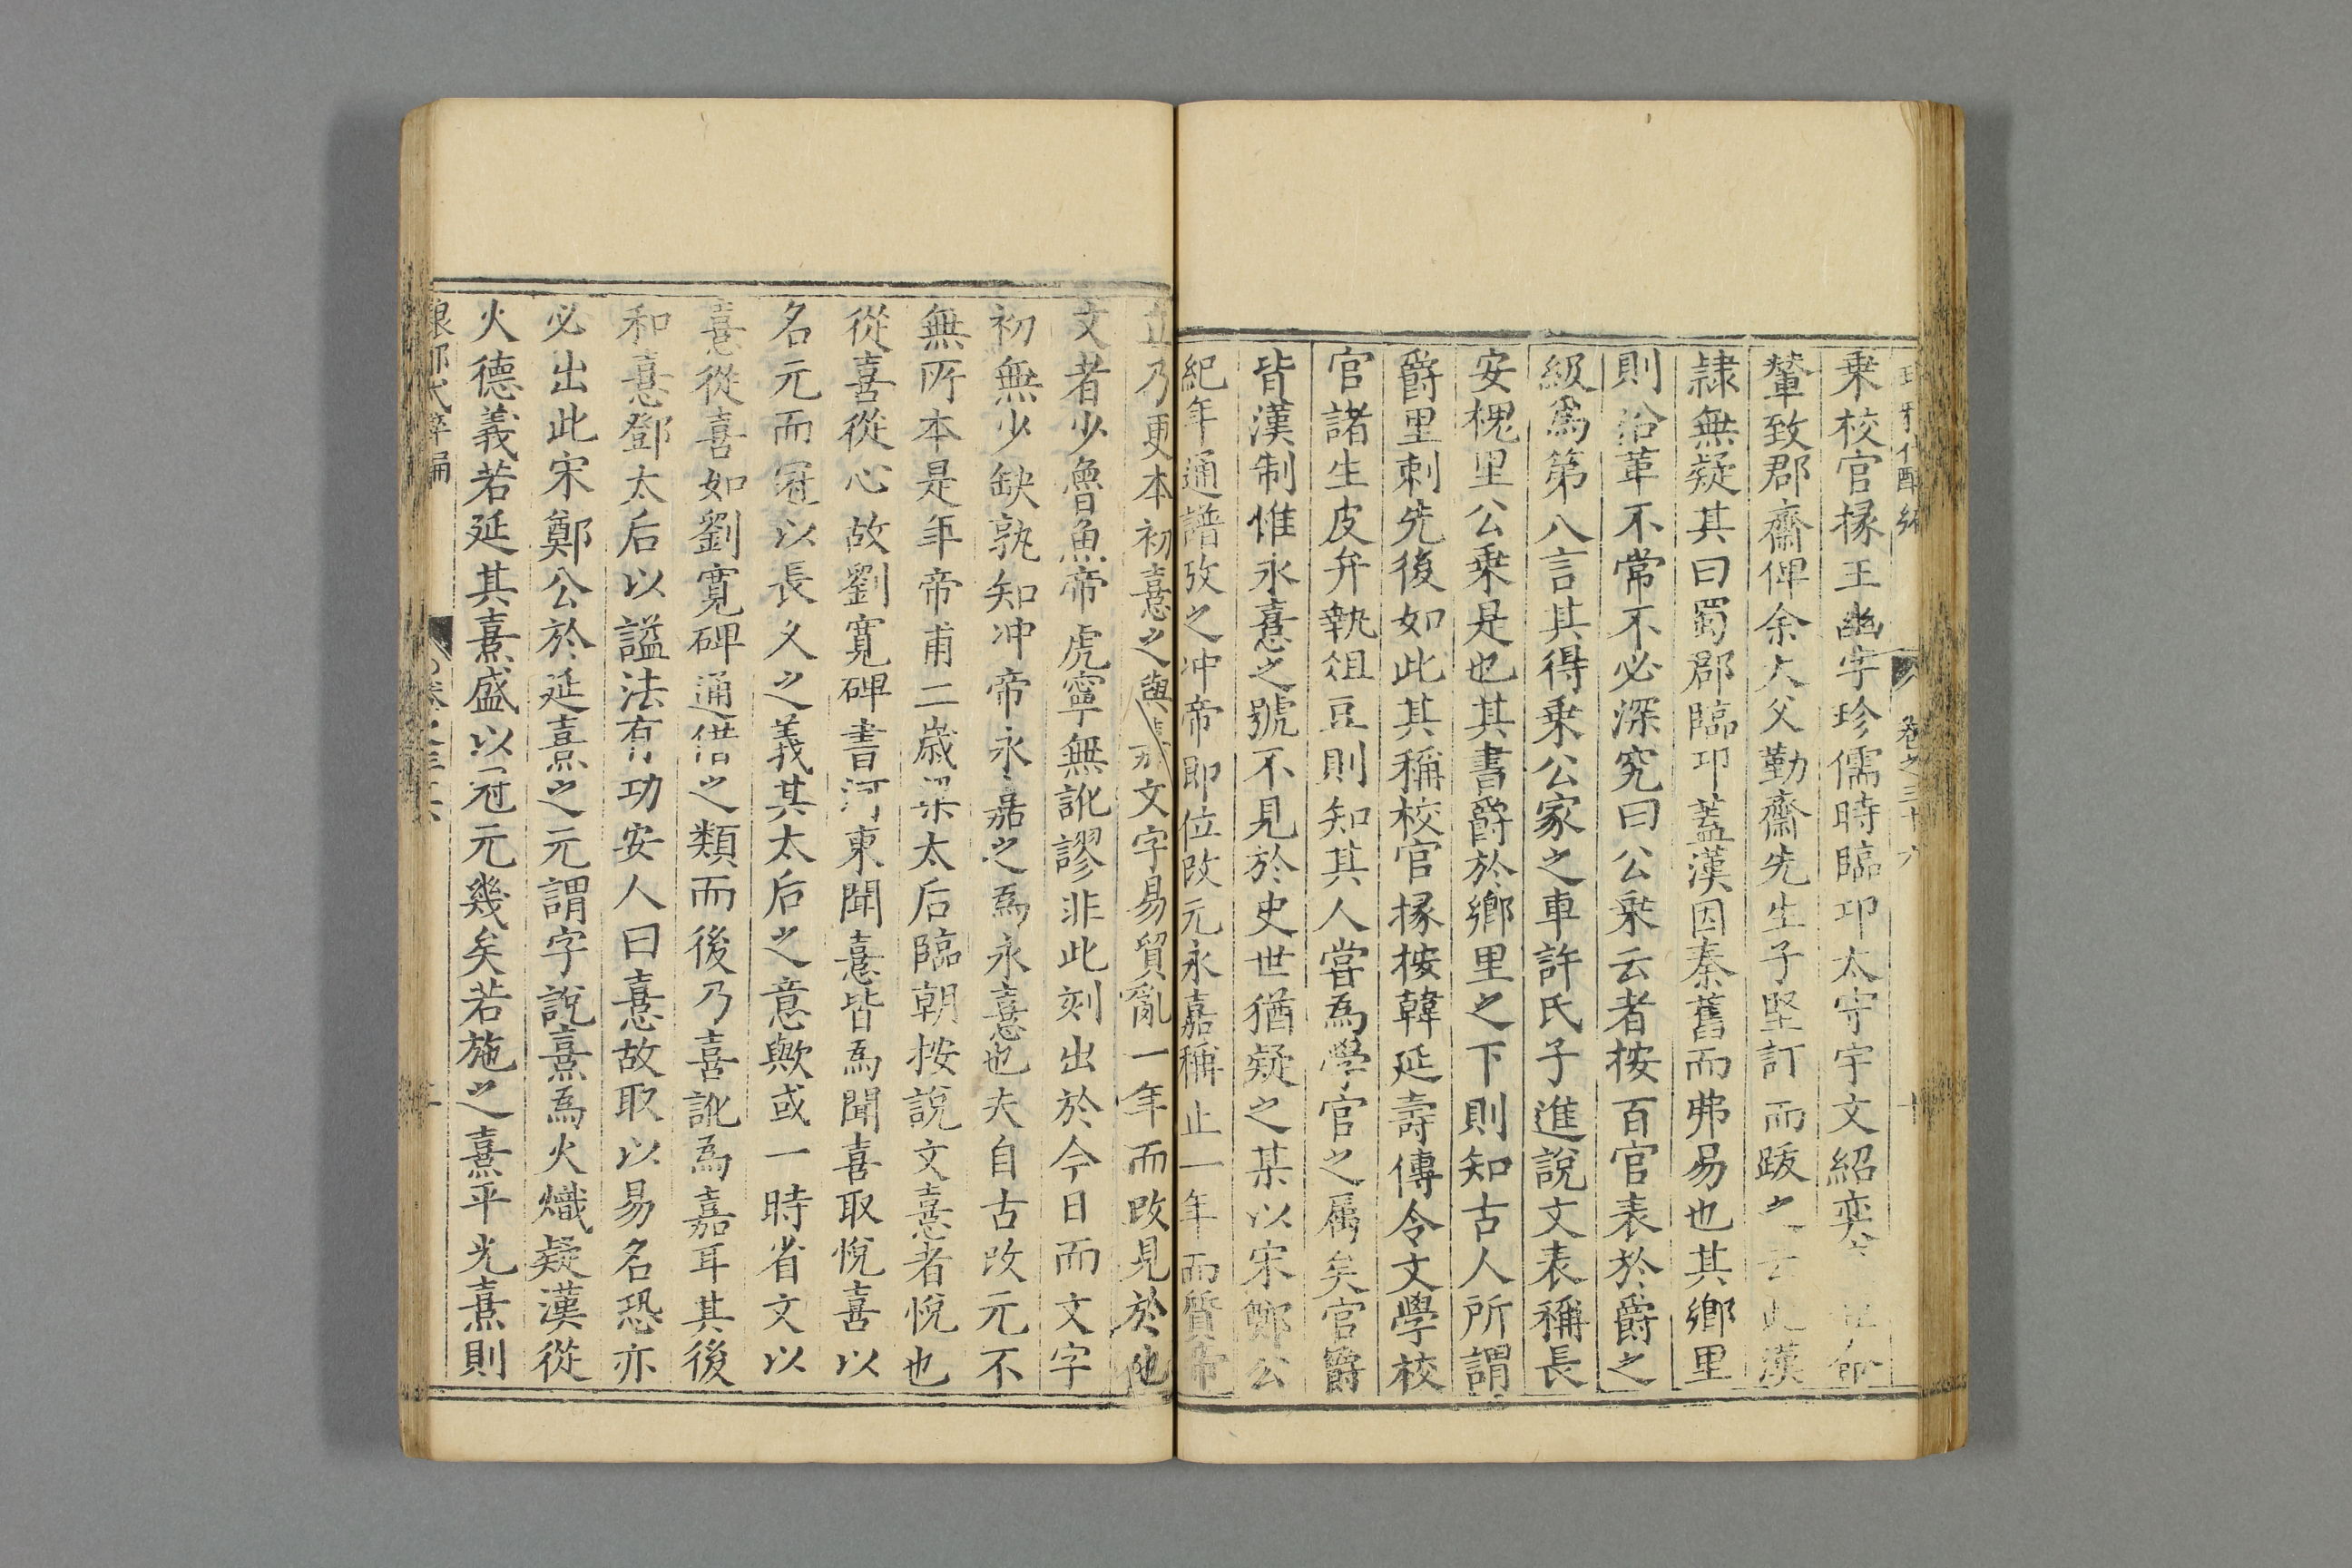 卷之三十六
乗校官掾王幽字珍儒時臨邛太守宇文紹奕
輦致郡齋俾余大父勤齋先生子堅訂而跋之云此漢
隷無疑其曰蜀郡臨邛蓋漢因秦舊而弗易也其鄉里
則沿革不常不必深究曰公乗云者按百官表於爵之
級爲第八言其得乗公家之車許氏子進說文表稱長
安槐里公乗是也其書爵於鄉里之下則知古人所謂
爵里刺先後如此其稱校官掾按韓延壽傳令文學校
官諸生皮弁執俎豆則知其人嘗爲學官之属矣官爵
皆漢制惟永憙之號不見於史世猶疑之某以宋鄭公
紀年通譜攷之冲帝即位改元永嘉稱止一年而質帝
立乃更本初憙之與嘉文字易貿亂一年而改見於他
文者少魯魚帝虎寧無訛謬非此刻出於今日而文字
初無少缺孰知冲帝永嘉之爲永憙也夫自古改元不
無所本是年帝甫二歲梁太后臨朝按說文憙者悅也
從喜從心故劉寬碑書河東聞憙皆爲聞喜取悅喜以
名元而冠以長久之義其太后之意歟或一時省文以
憙從喜如劉寬碑通借之類而後乃喜訛爲嘉耳其後
和憙鄧太后以謚法有功安人曰憙故取以易名恐亦
必出此宋鄭公於延熹之元謂字說熹爲火熾疑漢從
火德義若延其熹盛以冠元幾矣若施之熹平光熹則